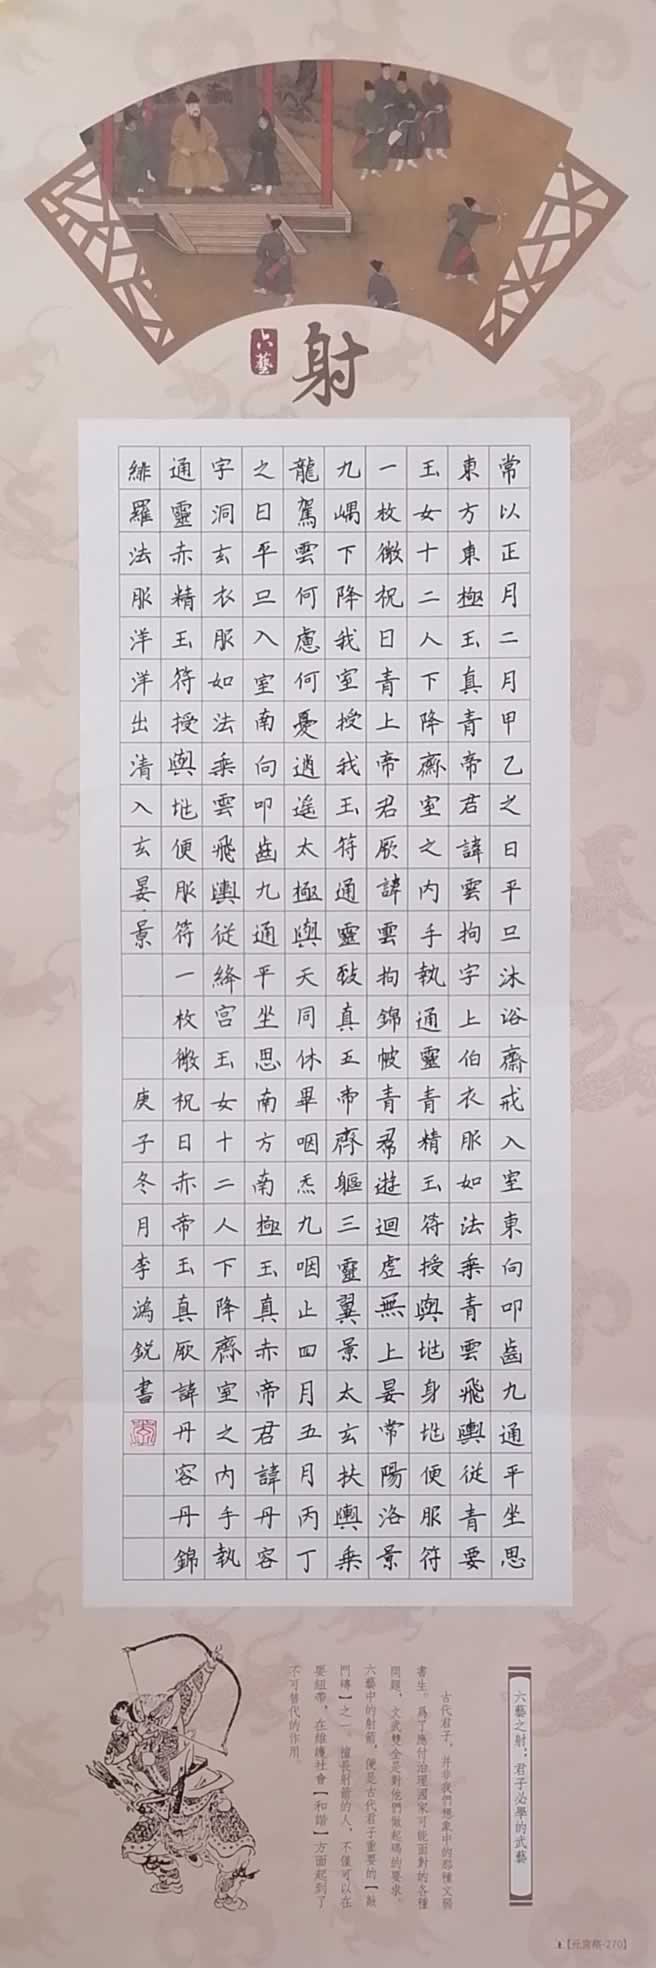 六藝
射
常以正月二月甲乙之日平旦沐浴齋戒入室東向叩齒九通平坐思
東方東極玉真青帝君諱雲拘字上伯衣服如法乘青雲飛輿從青要
玉女十二人下降齋室之內手執通靈青精玉符授與兆身兆便服符
一枚微祝曰青上帝君厥諱雲拘錦帔青帬遊迴虛無上晏常陽洛景
九嵎下降我室授我玉符通靈致真五帝齊軀三靈翼景太玄扶輿乘
龍駕雲何慮何憂逍遙太極與天同休畢咽炁九咽止四月五月丙丁
之日平旦入室南向叩齒九通平坐思南方南極玉真赤帝君諱丹容
字洞玄衣服如法乘雲飛輿從絳宮玉女十二人下降齋室之內手執
通靈赤精玉符授與兆便服符一枚微祝曰赤帝玉真厥諱丹容丹錦
緋羅法服洋洋出清入玄晏景 庚子冬月李鴻銳書
六藝之射：君子必學的武藝
古代君子，并非我們想象中的那種文弱
書生。爲了應付治理國家可能面對的各種
問題，文武雙全是對他們做起碼的要求。
六藝中的射箭，便是古代君子重要的【敲
門磚】之一。擅長射箭的人，不僅可以在
要紐帶，在維護社會【和諧】方面起到了
不可替代的作用。